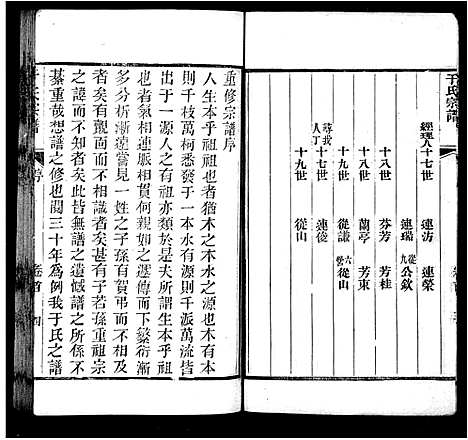 于氏宗譜
經理人十七世 連汸 連榮
連瑞 從九公欽
十八世 芬芳 芳桂
十八世 蘭亭 芳東
十九世 從謙 從山
人丁十七世 連俊
十九世 從山
重修宗譜序
人生本乎祖祖也者猶木之本水之源也木有本
則千枝萬柯悉發于一本水有源則千派萬流皆
出于一源人之有祖亦類於於夫所謂生本乎祖
也者氣相連脈相貫何其親如之遞傳而下繁衍漸
多分析漸遠嘗見一姓之子孫有覿面而不相及
者矣有覿面而不相識者矣甚有若孫重祖宗
之諱而不知者矣此皆無譜之遺憾譜之所係不
綦重哉想譜之修也閱三十年為例我于氏之譜
于氏宗譜 序 卷首 四